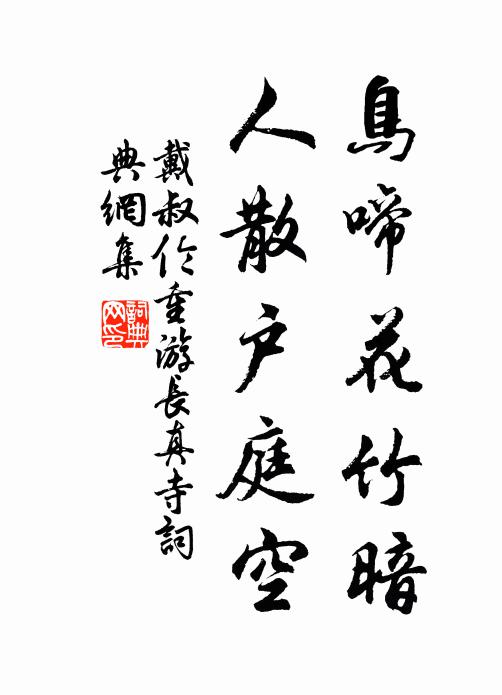 鳥啼花竹暗
人散户庭空
戴叔伦重游長真寺詞
典網集
詞典
网印